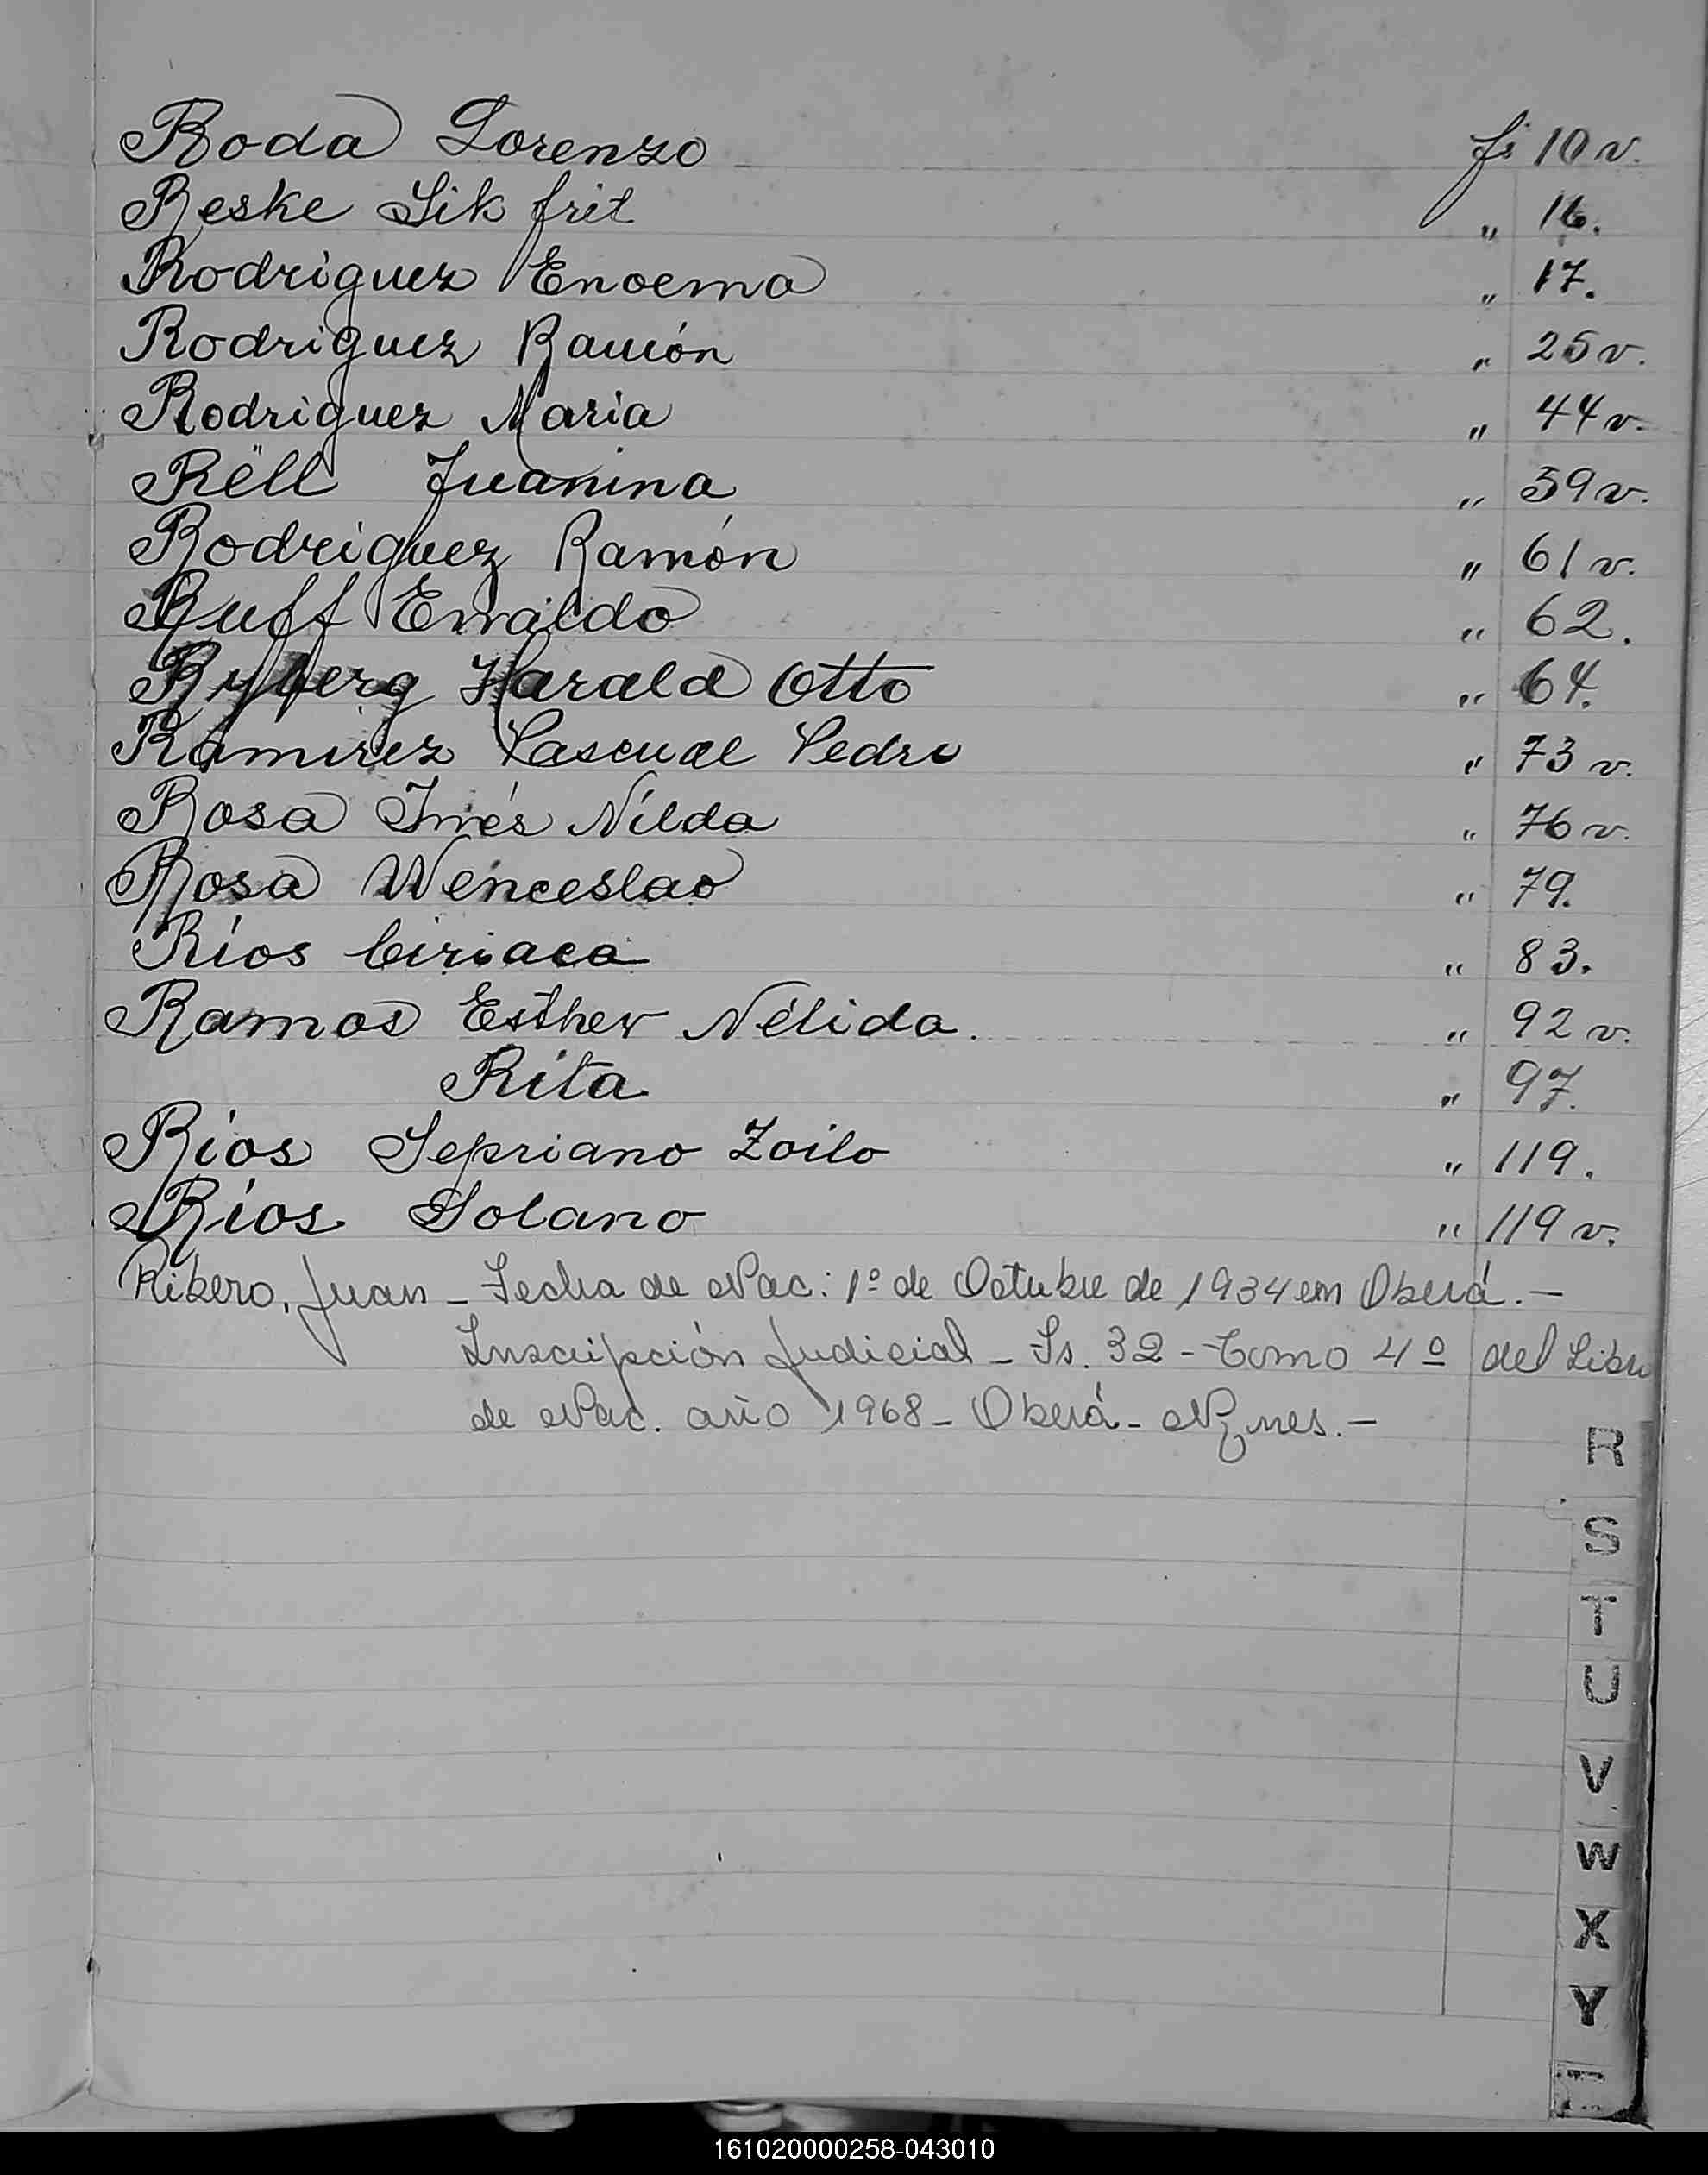 Roda Lorenzo fs 10 v.
Reske Sik frit " 16.
Rodriguez Enoema " 17.
Rodriguez Ramón " 25 v.
Rodriguez Maria " 44 v.
Rëll Juanina " 59 v.
Rodriguez Ramón " 61 v.
Ruff Ewaldo " 62.
Ryberg Harald Otto " 64.
Ramirez Pascual Pedro " 73 v.
Rosa Inés Nilda " 76 v.
Rosa Wenceslao " 79.
Ríos Ciriaca " 83.
Ramos Esther Nélida. " 92 v.
Rita " 97.
Ríos Sepriano Zoilo " 119.
Ríos Solano " 119 v.
Ribero, Juan - Fecha de Nac: 1º de Octubre de 1934 en Oberá.-
Inscripción Judicial - Fs. 32 - Tomo 4º del Libro
de Nac. año 1968 - Oberá -
R
S
T
U
V
W
X
Y
161020000258-043010